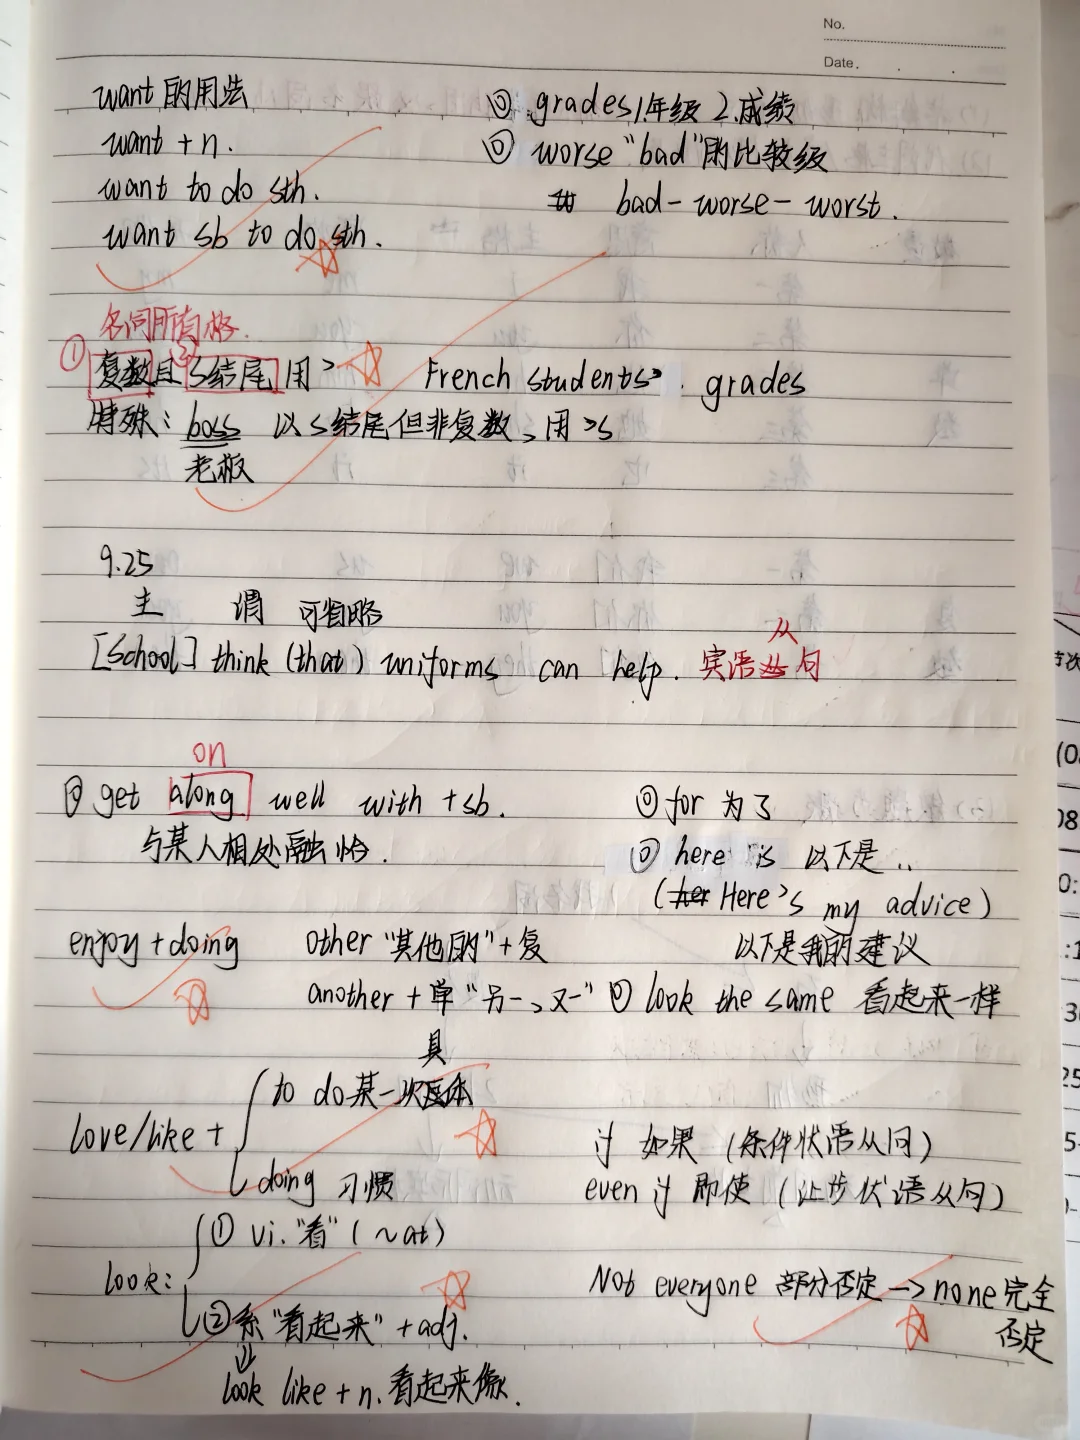 No.
Date.
want的用法
want + n.
want to do sth.
want sb to do sth.
◎ grades 1年级 2.成绩
◎ worse "bad"的比较级
bad - worse - worst.
名词所有格.
① 复数且 ② s结尾 用 ' French students' . grades
特殊: boss 以s结尾但非复数、用 's
老板
9.25
主 谓 可省略
[School] think (that) uniforms can help. 宾语从句
从
on
◎ get along well with + sb.
与某人相处融恰.
◎ for 为了
◎ here is 以下是..
(Here's my advice)
以下是我的建议
enjoy + doing
other "其他的" + 复
another + 单 "另一、又一"
◎ look the same 看起来一样
love/like +
具
to do 某一次具体
doing 习惯
if 如果 (条件状语从问)
even if 即使 (让步状语从句)
look:
① vi. "看" (~at)
② 系 "看起来" + adj.
⇓
look like + n. 看起来像.
Not everyone 部分否定 → none 完全
否定